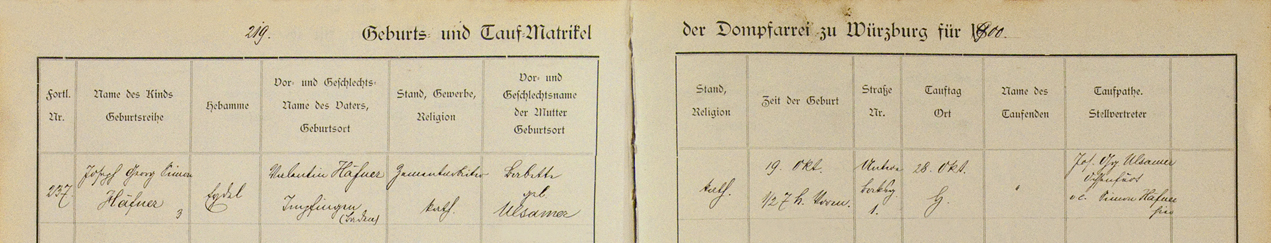 219. Geburts- und Tauf-Matrikel
der Dompfarrei zu Würzburg für 1900.
Fortl. Nr.
Name des Kinds
Geburtsreihe
Hebamme
Vor- und Geschlechts-
Name des Vaters,
Geburtsort
Stand, Gewerbe,
Religion
Vor- und
Geschlechtsname
der Mutter
Geburtsort
Stand,
Religion
Zeit der Geburt
Straße
Nr.
Tauftag
Ort
Name des
Taufenden
Taufpathe.
Stellvertreter
237.
Joseph Georg Simon
Häfner
3
Eydel
Valentin Häfner
Impfingen
(Baden)
Zementarbeiter
kath.
Babette
geb.
Ulsamer
kath.
19. Okt.
1/2 7 h. Vorm.
Untere
1.
28. Okt.
Jos. Gg Ulsamer
Ochsenfurt
v.c. Simon Häfner
hier